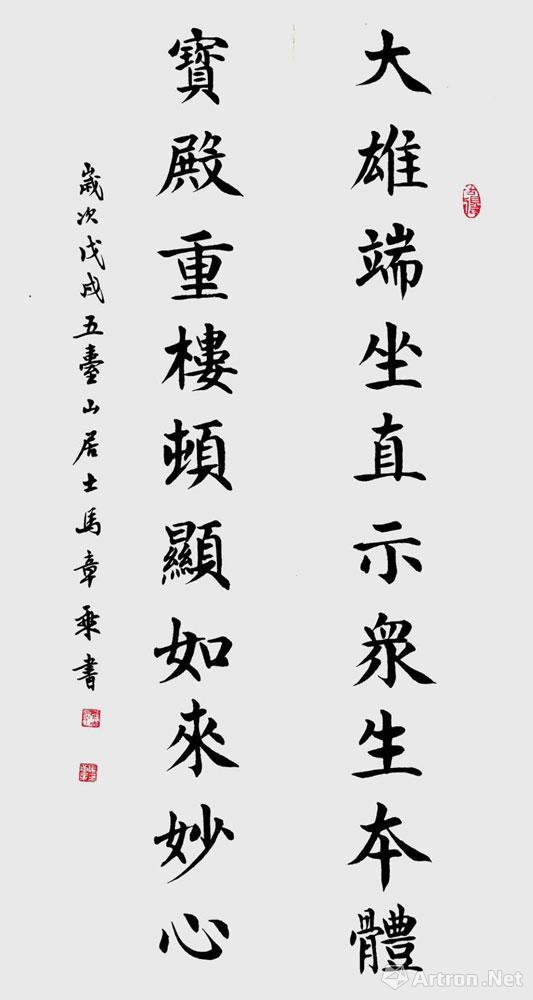 大雄端坐直示衆生本體
寶殿重樓頓顯如來妙心
歲次戊戌五臺山居士馬章乘書
Artron.Net